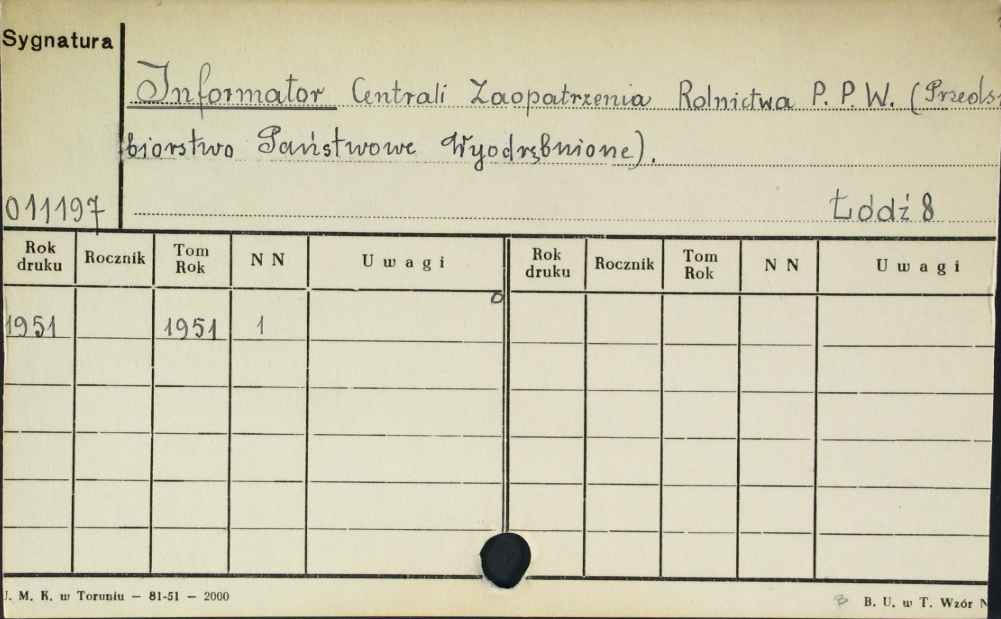 Sygnatura
Informator Centrali Zaopatrzenia Rolnictwa P. P. W. (Przeds
biorstwo Państwowe Wyodrębnione).
011197
Łódź 8
Rok druku Rocznik Tom Rok N N Uwagi Rok druku Rocznik Tom Rok N N Uwagi
1951 1951 1
J. M. K. w Toruniu — 81-51 — 2000
B. U. w T. Wzór N